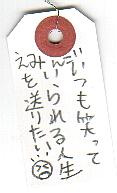 みんな
いつも笑って
いられる人生
を送りたい…